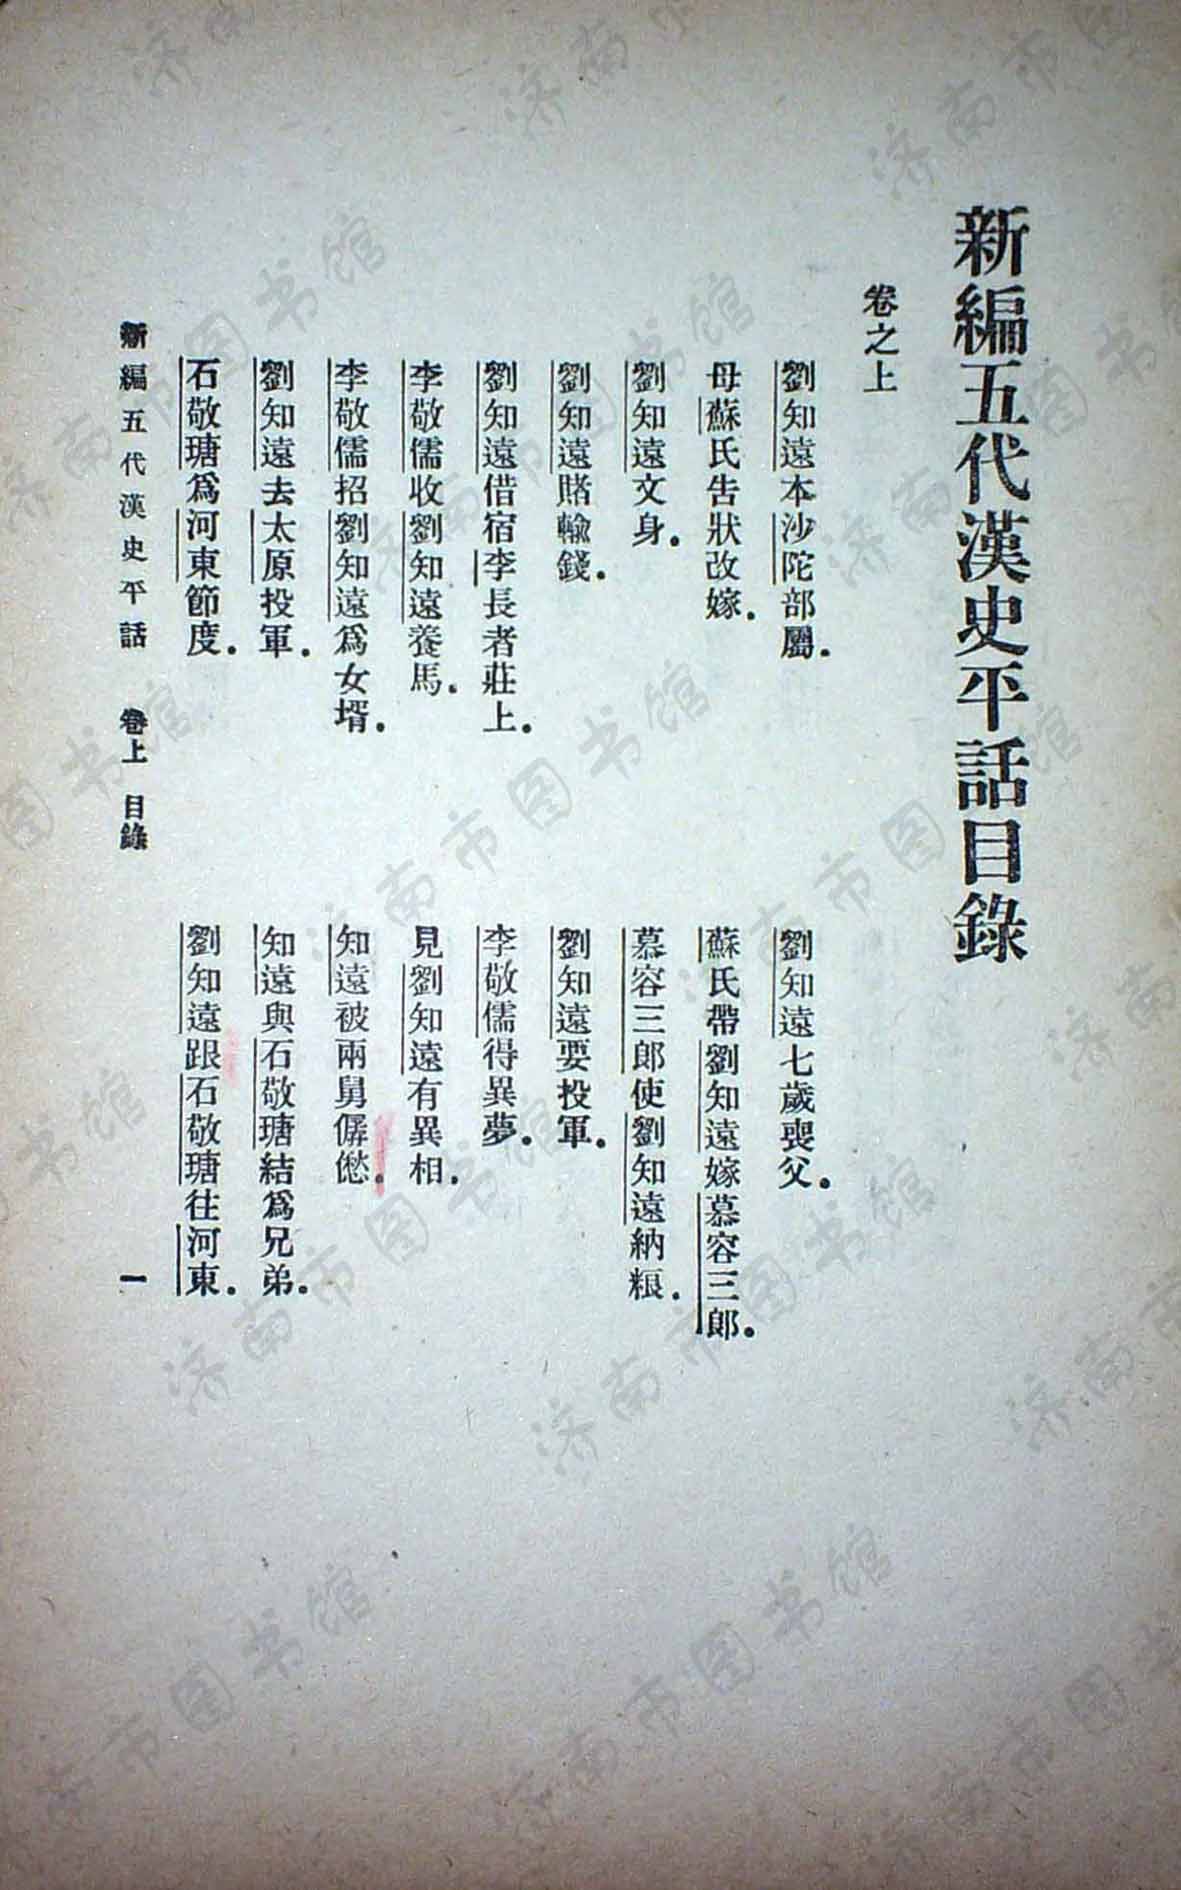 新編五代漢史平話目錄
卷之上
劉知遠本沙陀部屬.
劉知遠七歲喪父.
母蘇氏告狀改嫁.
蘇氏帶劉知遠嫁慕容三郎.
劉知遠文身.
慕容三郎使劉知遠納粮.
劉知遠賭輸錢.
劉知遠要投軍.
劉知遠借宿李長者莊上.
李敬儒得異夢.
李敬儒收劉知遠養馬.
見劉知遠有異相.
李敬儒招劉知遠爲女壻.
知遠被兩舅僝僽.
劉知遠去太原投軍.
知遠與石敬瑭結爲兄弟.
石敬瑭爲河東節度.
劉知遠跟石敬瑭往河東.
新編五代漢史平話 卷上 目錄 一
济南市图书馆